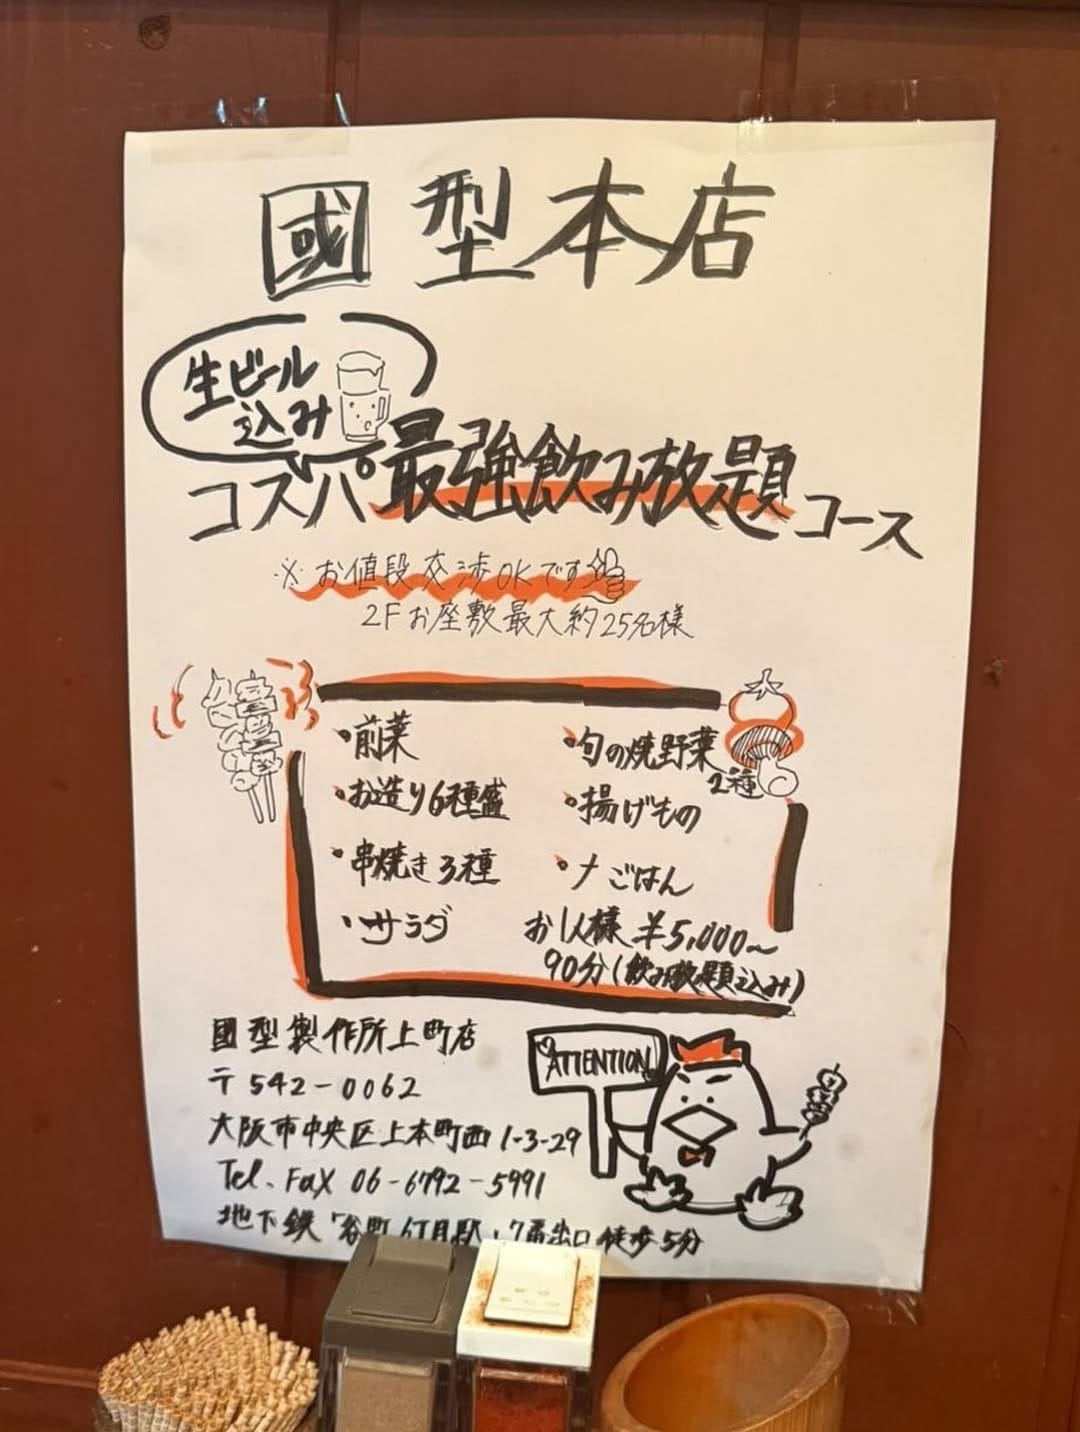 國型本店
生ビール
込み
コスパ最強飲み放題コース
※お値段交渉OKです
2Fお座敷最大約25名様
・前菜
・お造り6種盛
・串焼き3種
・サラダ
・旬の焼野菜
2種
・揚げもの
・〆ごはん
お1人様 ¥5,000〜
90分(飲み放題込み)
國型製作所上町店
〒542-0062
大阪市中央区上本町西1-3-29
Tel、FAX 06-6792-5991
地下鉄「谷町6丁目駅」7番出口徒歩5分
ATTENTION